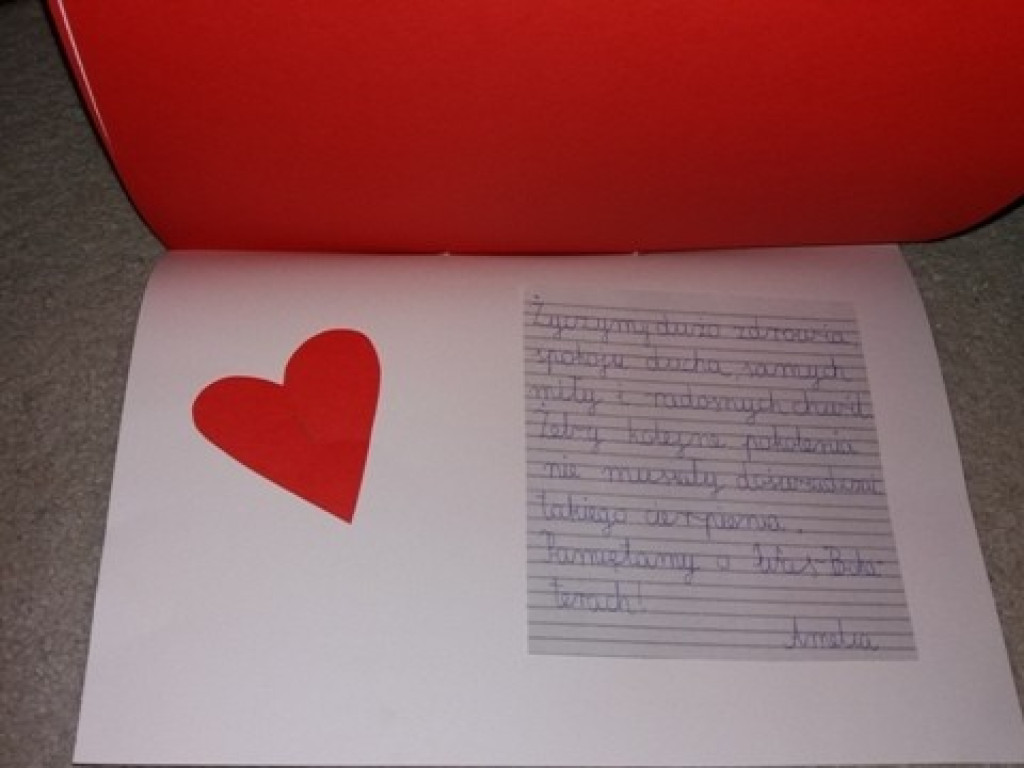 Życzymy dużo zdrowia
spokoju ducha, samych
miły i radosnych chwil.
Żeby kolejne pokolenia
nie musiały doświadczać
takiego cierpienia.
Pamiętamy o Was-Boha-
terach!
Amelia